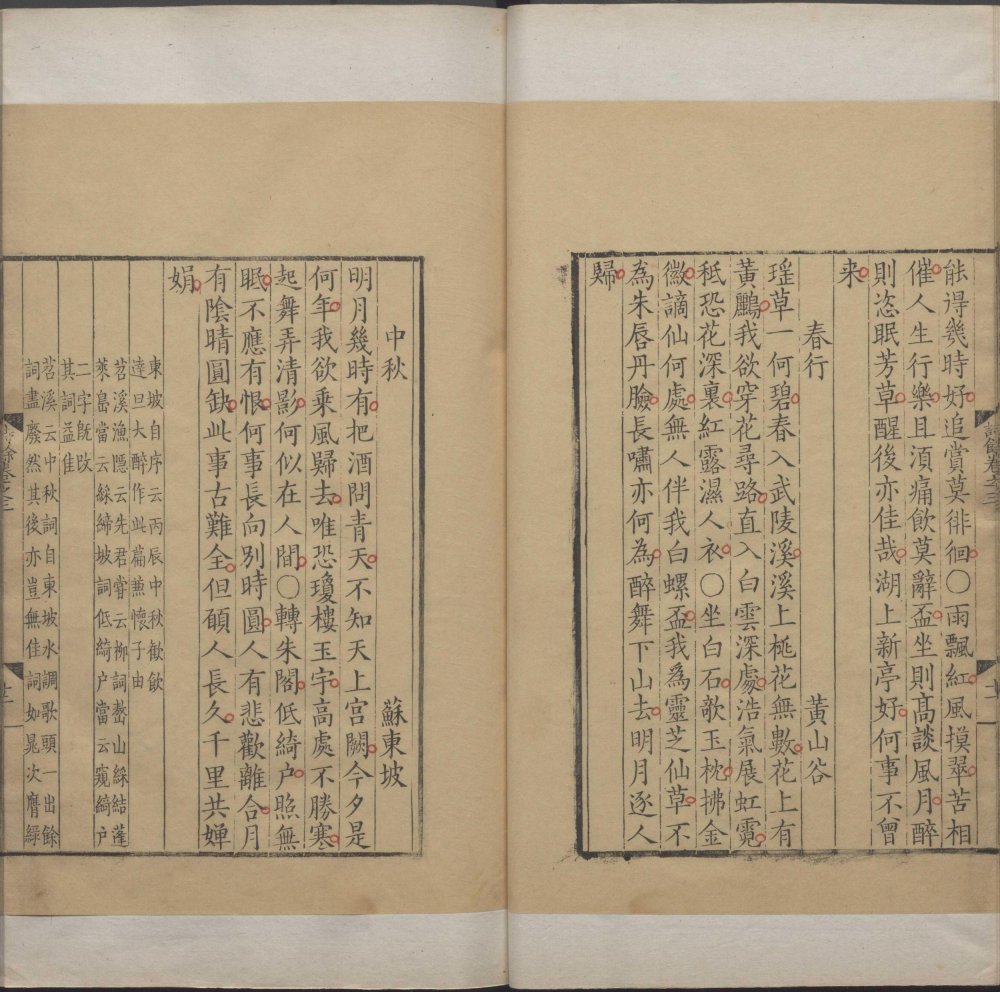 能得幾時好追賞莫徘徊〇雨飄紅風摸翠苦相
催人生行樂且須痛飲莫辭盃坐則髙談風月醉
則恣眠芳草醒後亦佳哉湖上新亭好何事不曾
来
春行 黃山谷
瑶草一何碧春入武陵溪溪上桃花無數花上有
黃鸝我欲穿花尋路直入白雲深處浩氣展虹霓
秖恐花深裏紅露濕人衣〇坐白石欹玉枕拂金
徽謫仙何處無人伴我白螺盃我爲靈芝仙草不
為朱唇丹臉長嘯亦何為醉舞下山去明月逐人
歸
中秋 蘇東坡
明月幾時有把酒問青天不知天上宮闕今夕是
何年我欲乘風歸去唯恐瓊樓玉宇高處不勝寒
起舞弄清影何似在人間〇轉朱閣低綺户照無
眠不應有恨何事長向別時圓人有悲歡離合月
有陰晴圓缺此事古難全但願人長久千里共嬋
娟
東坡自序云丙辰中秋歡飲
達旦大醉作此篇蕉懷子由
苕溪漁隱云先君嘗云柳詞鼇山綵結蓬
萊島當云綵締坡詞低綺户當云窺綺户
二字旣改
其詞益佳
苕溪云中秋詞自東坡水調歌頭一出餘
詞盡廢然其後亦豈無佳詞如晁次膺綠